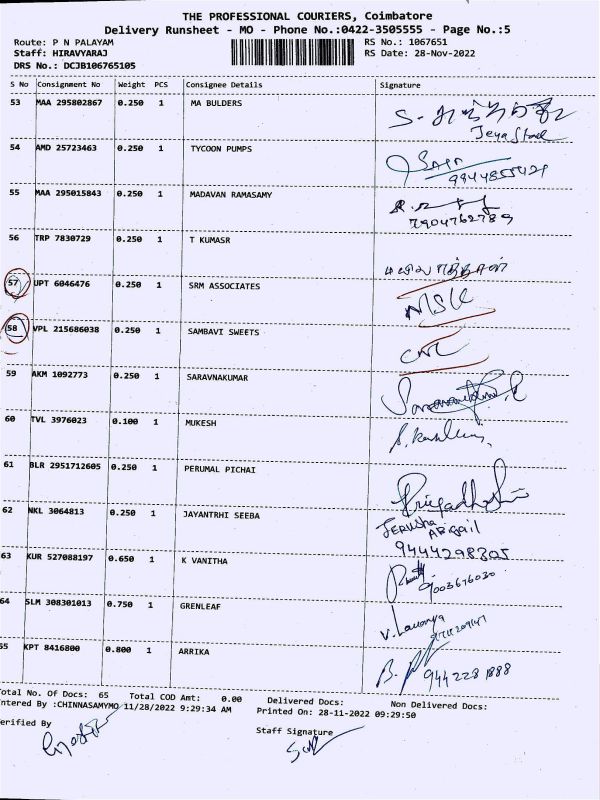 THE PROFESSIONAL COURIERS, Coimbatore
Delivery Runsheet - MO - Phone No.:0422-3505555 - Page No.:5
Route: P N PALAYAM RS No.: 1067651
Staff: HIRAVYARAJ RS Date: 28-Nov-2022
DRS No.: DCJB106765105
S No Consignment No Weight PCS Consignee Details Signature
53 MAA 295802867 0.250 1 MA BULDERS
54 AMD 25723463 0.250 1 TYCOON PUMPS
55 MAA 295015843 0.250 1 MADAVAN RAMASAMY
7904762789
56 TRP 7830729 0.250 1 T KUMASR
57 UPT 6046476 0.250 1 SRM ASSOCIATES
58 VPL 215686038 0.250 1 SAMBAVI SWEETS
59 AKM 1092773 0.250 1 SARAVNAKUMAR
60 TVL 3976023 0.100 1 MUKESH
61 BLR 2951712605 0.250 1 PERUMAL PICHAI
62 NKL 3064813 0.250 1 JAYANTRHI SEEBA
JERUSHA
ABIGAIL
9444298305
63 KUR 527088197 0.650 1 K VANITHA
9003676030
64 SLM 308301013 0.750 1 GRENLEAF
V. Lavanya
55 KPT 8416800 0.800 1 ARRIKA
944 228 1888
Total No. Of Docs: 65 Total COD Amt: 0.00 Delivered Docs: Non Delivered Docs:
ntered By :CHINNASAMYMO 11/28/2022 9:29:34 AM Printed On: 28-11-2022 09:29:50
erified By Staff Signature